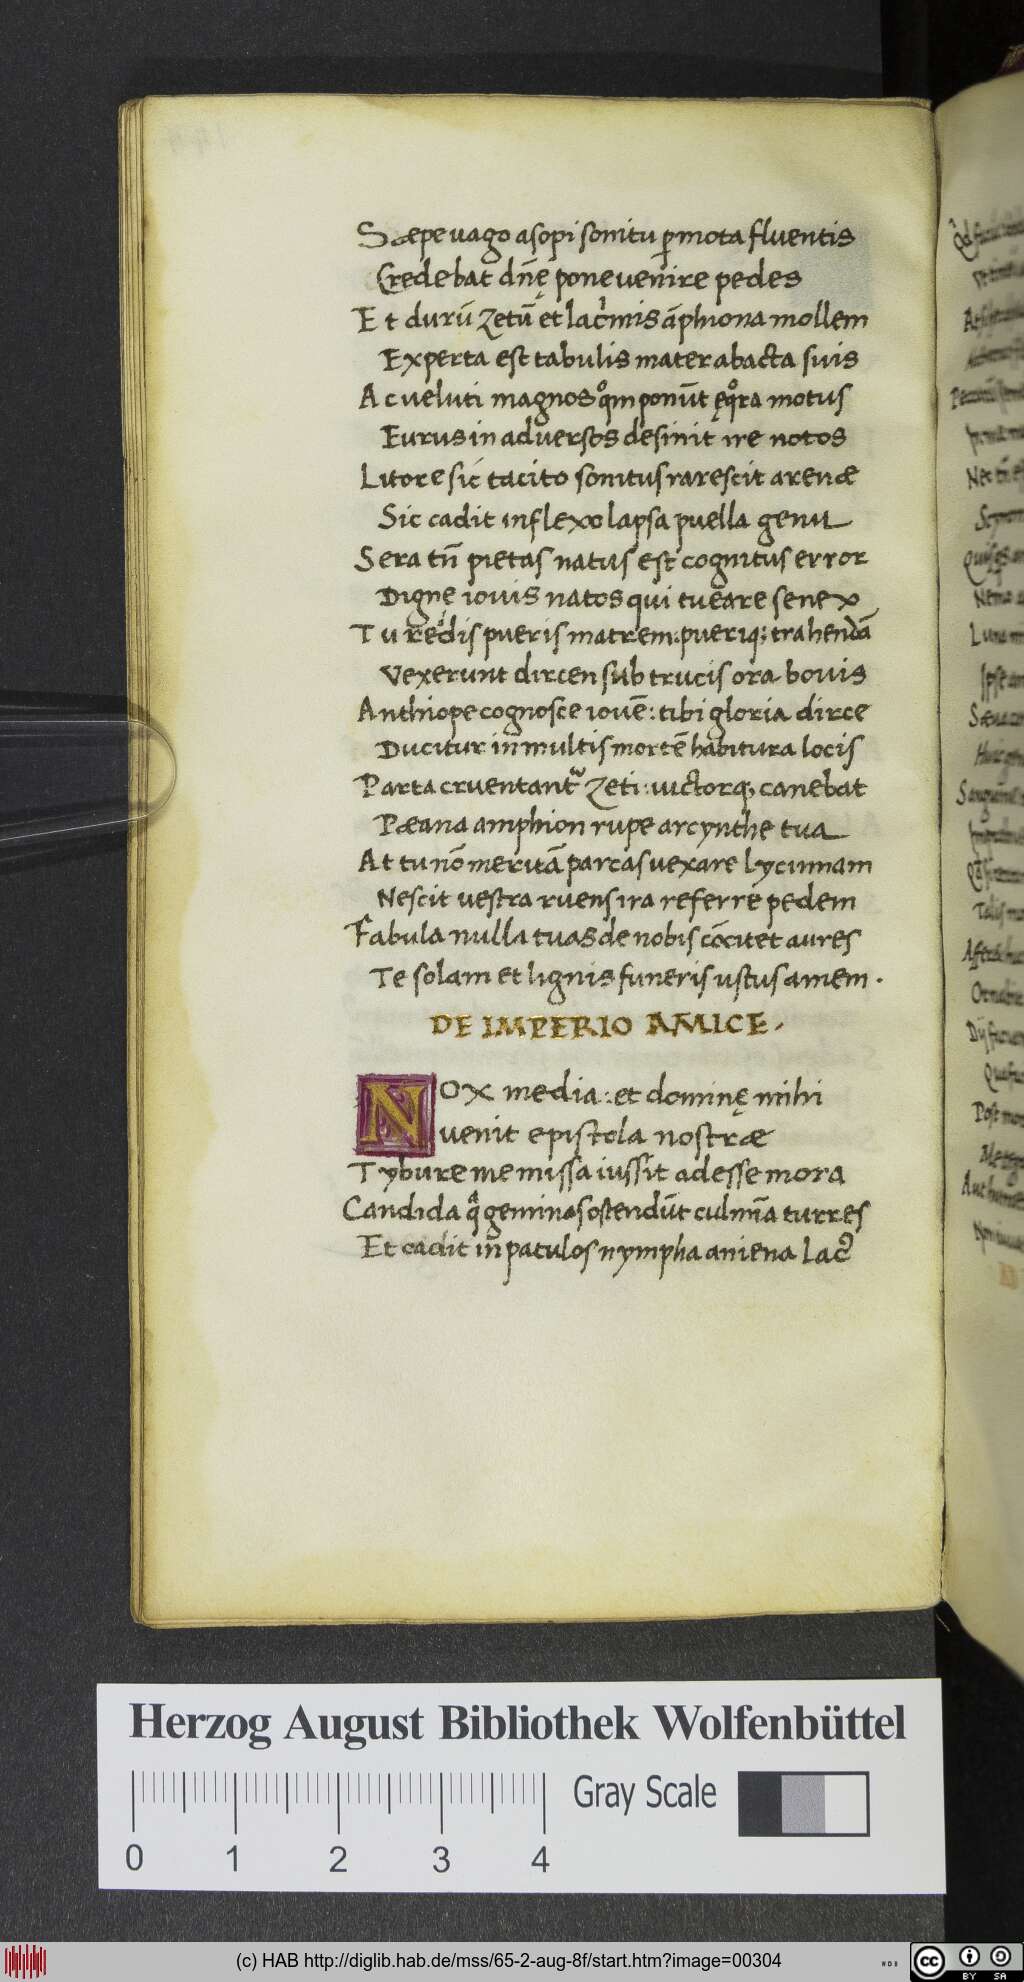 Sæpe vago asopi sonitu ꝑmota fluentis
Credebat dn̄ę pone venire pedes
Et durū zetū et lac̓mis āphiona mollem
Experta est tabulis mater abacta suis
Ac veluti magnos qͦm ponūt ęqͦra motus
Eurus in adversos desinit ire notos
Litore sic tacito sonitus rarescit arenæ
Sic cadit inflexo lapsa puella genu
Sera tn̄ pietas natis est cognitus error
Digne iovis natos qui tueare senex
Tu reddis pueris matrem: pueriq; trahendā
Vexerunt dircen sub trucis ora bovis
Anthiope cognosce iovē: tibi gloria dirce
Ducitur in multis mortē habitura locis
Parta cruentant᷑ zeti: victorq; canebat
Pæana amphion rupe arcynthe tua
At tu nō meritā parcas vexare lycinnam
Nescit vestra ruens ira referre pedem
Fabula nulla tuas de nobis cōcitet aures
Te solam et lignis funeris ustus amem.
DE IMPERIO AMICE.
NOX media: et dominę mihi
venit epistola nostræ
Tybure me missa iussit adesse mora
Candida qͣ geminas ostendūt culmīa turres
Et cadit in patulos nympha aniena lac᷒
Herzog August Bibliothek Wolfenbüttel
Gray Scale
0 1 2 3 4
(c) HAB http://diglib.hab.de/mss/65-2-aug-8f/start.htm?image=00304
cc BY SA